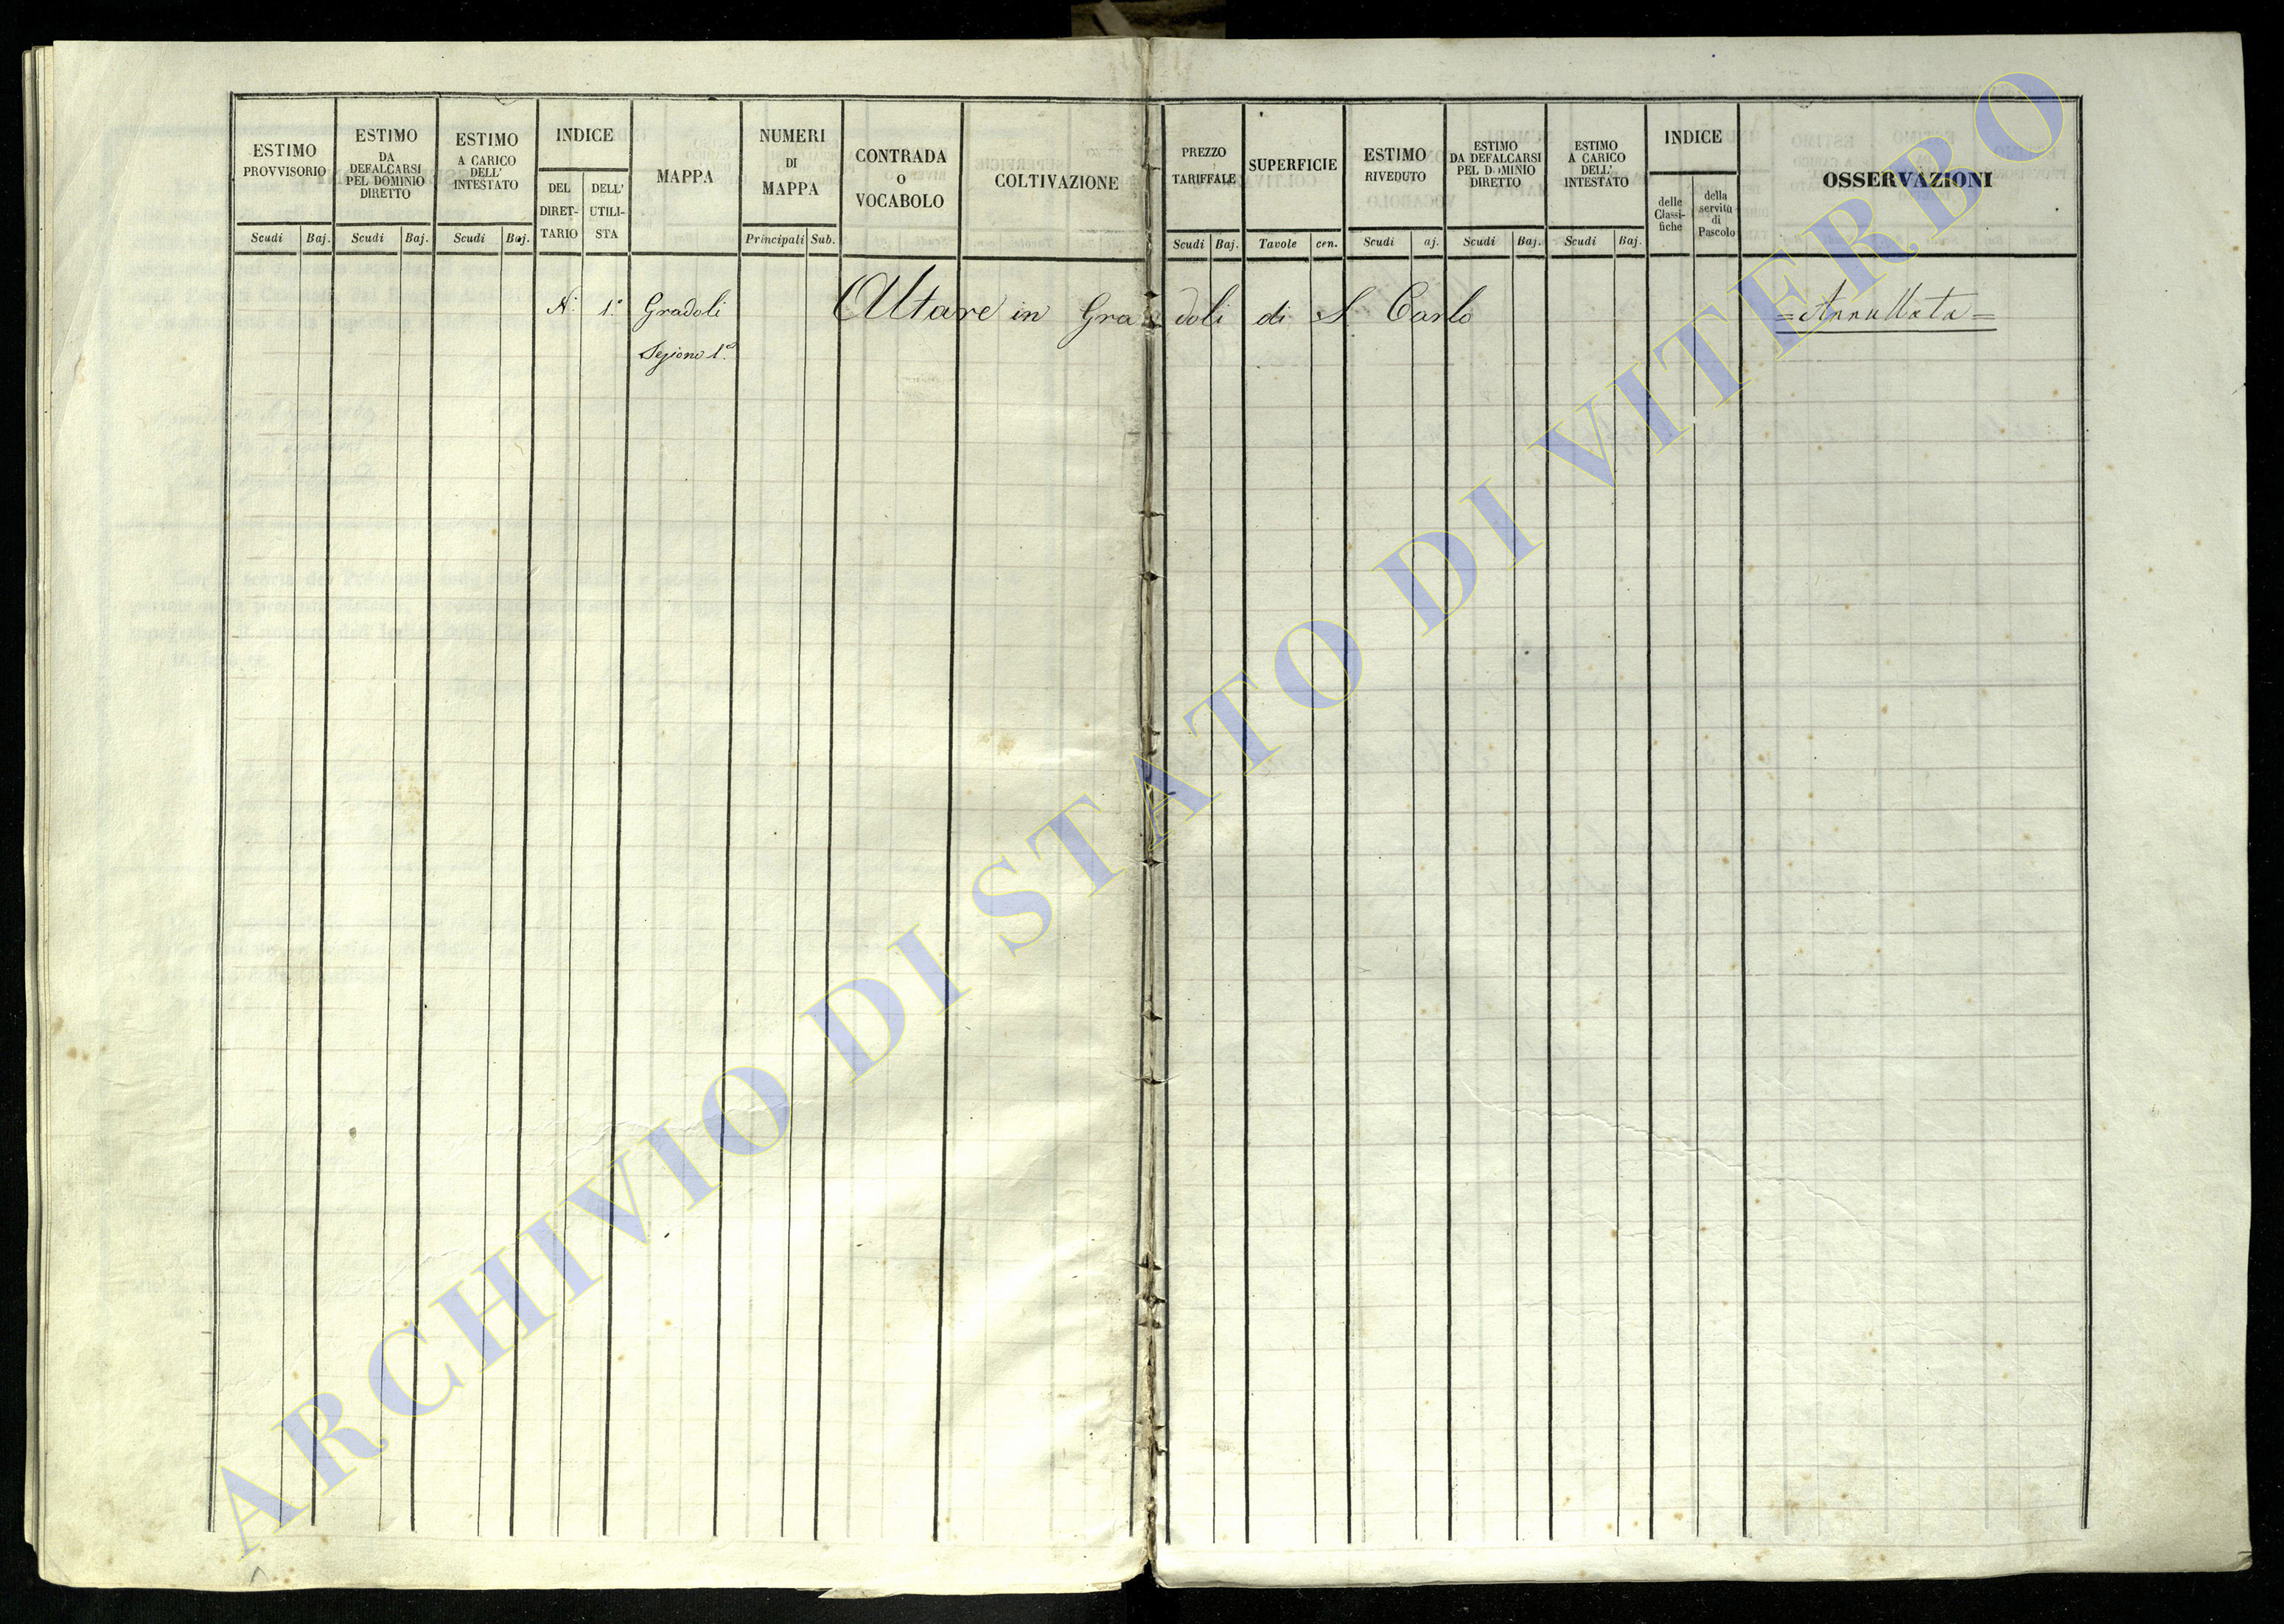 ESTIMO PROVVISORIO
Scudi Baj.
ESTIMO DA DEFALCARSI PEL DOMINIO DIRETTO
Scudi Baj.
ESTIMO A CARICO DELL' INTESTATO
Scudi Baj.
INDICE
DEL DIRET-TARIO
DELL' UTILI-STA
MAPPA
NUMERI DI MAPPA
Principali Sub.
CONTRADA O VOCABOLO
COLTIVAZIONE
PREZZO TARIFFALE
Scudi Baj.
SUPERFICIE
Tavole cen.
ESTIMO RIVEDUTO
Scudi aj.
ESTIMO DA DEFALCARSI PEL D.MINIO DIRETTO
Scudi Baj.
ESTIMO A CARICO DELL' INTESTATO
Scudi Baj.
INDICE
delle Classi-fiche
della servitù di Pascolo
OSSERVAZIONI
N: 1° Gradoli Altare in Gradoli di S. Carlo =Annullata=
Sezione 1ª
ARCHIVIO DI STATO DI VITERBO